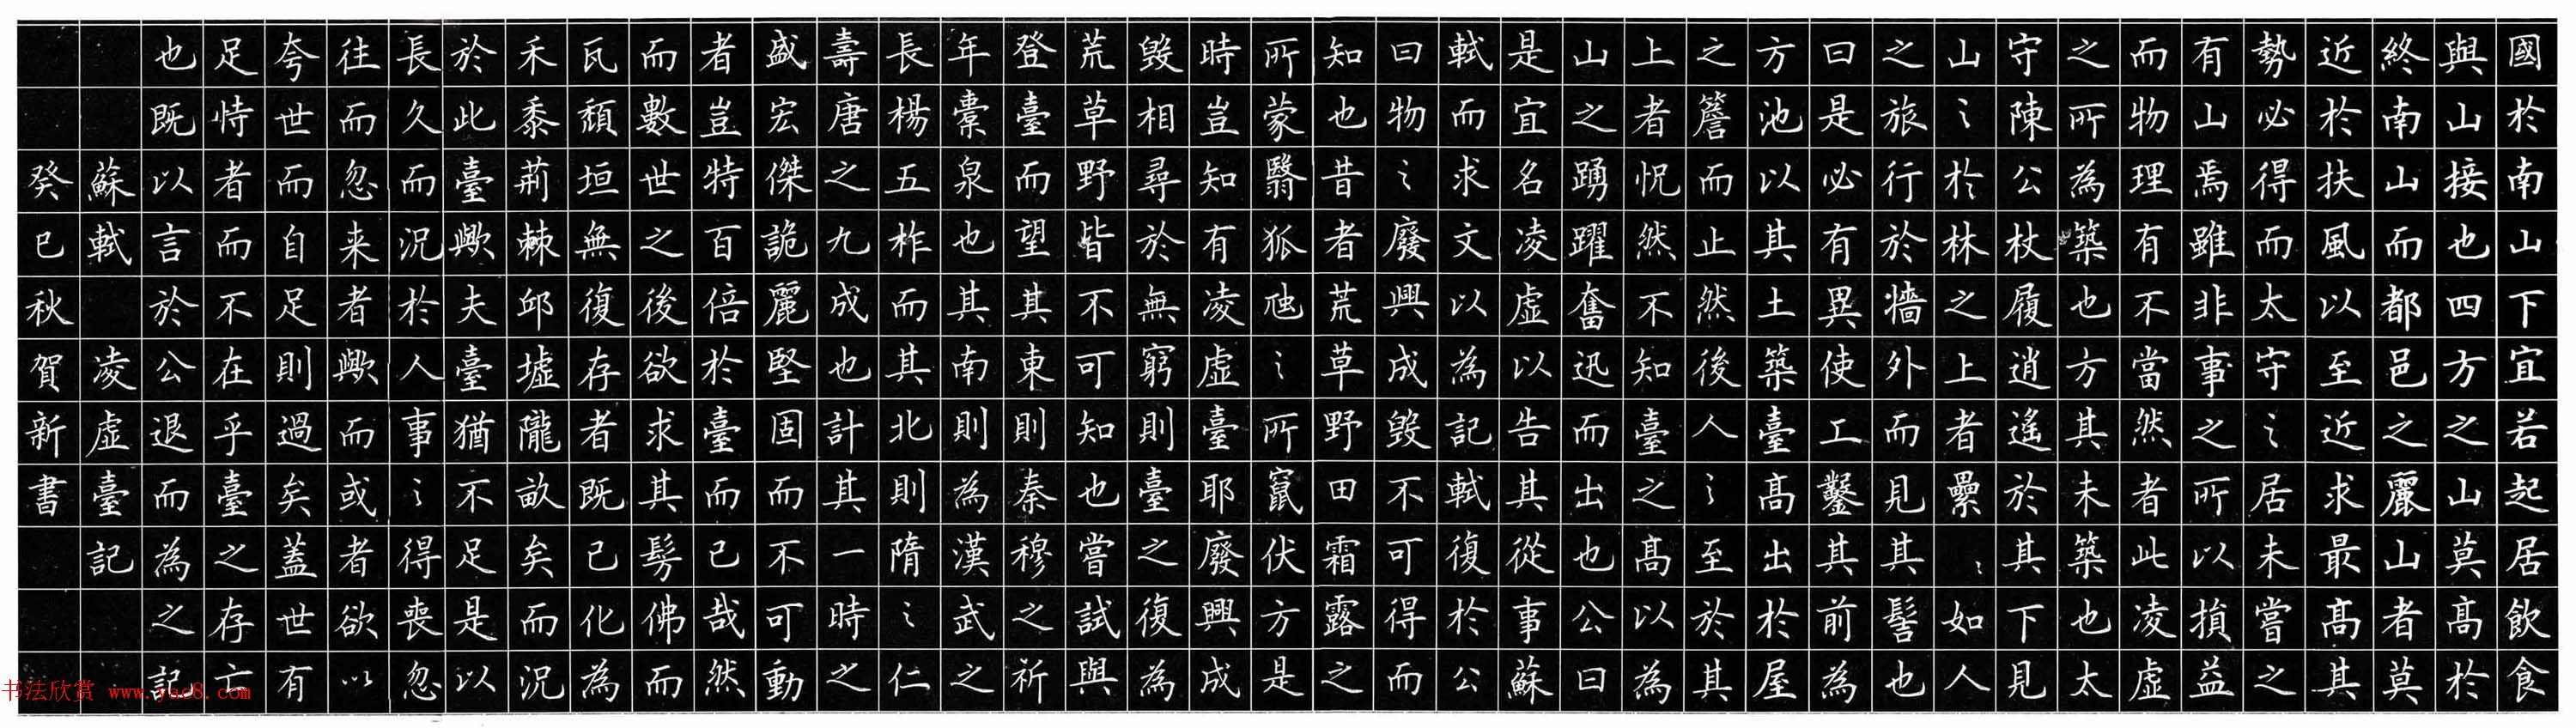 國於南山下宜若起居飲食
與山接也四方之山莫高於
終南山而都邑之麗山者莫
近於扶風以至近求最高其
勢必得而太守〻居未嘗之
有山焉雖非事之所以損益
而物理有不當然者此凌虛
之所為築也方其未築也太
守陳公杖履逍遙於其下見
山〻於林之上者纍〻如人
之旅行於牆外而見其髻也
曰是必有異使工鑿其前為
方池以其土築臺高出於屋
之簷而止然後人〻至於其
上者怳然不知臺之高以為
山之踴躍奮迅而出也公曰
是宜名凌虛以告其從事蘇
軾而求文以為記軾復於公
曰物〻廢興成毀不可得而
知也昔者荒草野田霜露之
所蒙翳狐虺〻所竄伏方是
時豈知有凌虛臺耶廢興成
毀相尋於無窮則臺之復為
荒草野皆不可知也嘗試與
登臺而望其東則秦穆之祈
年橐泉也其南則為漢武之
長楊五柞而其北則隋〻仁
壽唐之九成也計其一時之
盛宏傑詭麗堅固而不可動
者豈特百倍於臺而已哉然
而數世之後欲求其髣佛而
瓦頹垣無復存者既已化為
禾黍荊棘邱墟隴畝矣而況
於此臺歟夫臺猶不足是以
長久而況於人事〻得喪忽
往而忽来者歟而或者欲以
夸世而自足則過矣蓋世有
足恃者而不在乎臺之存亡
也既以言於公退而為之記
蘇軾 凌虛臺記
癸巳秋賀新書
书法欣赏 www.yac8.com